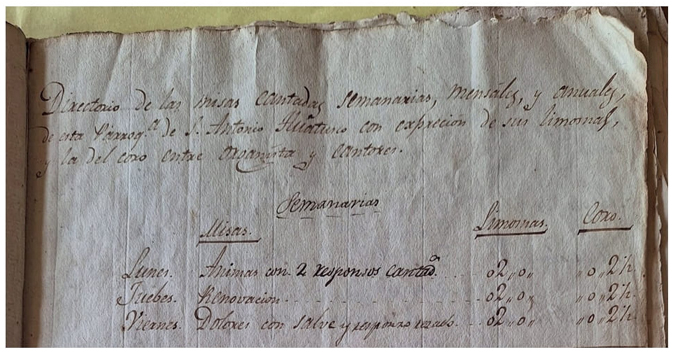 Directorio de las misas cantadas semanarias, mensales, y anuales,
de esta Parroq.ª de S. Antonio con exprecion de sus limosnas,
y la del coro entre organista y cantores.
Semanarias
Misas. Limosnas Coro.
Lunes. Animas con 2 responsos cantad.s 02,,0,, ,,0,,2½.
Juebes. Renovacion 02,,0,, ,,0,,2½.
Viernes. Dolores con salve y responso rezado. 02,,0,, ,,0,,2½.